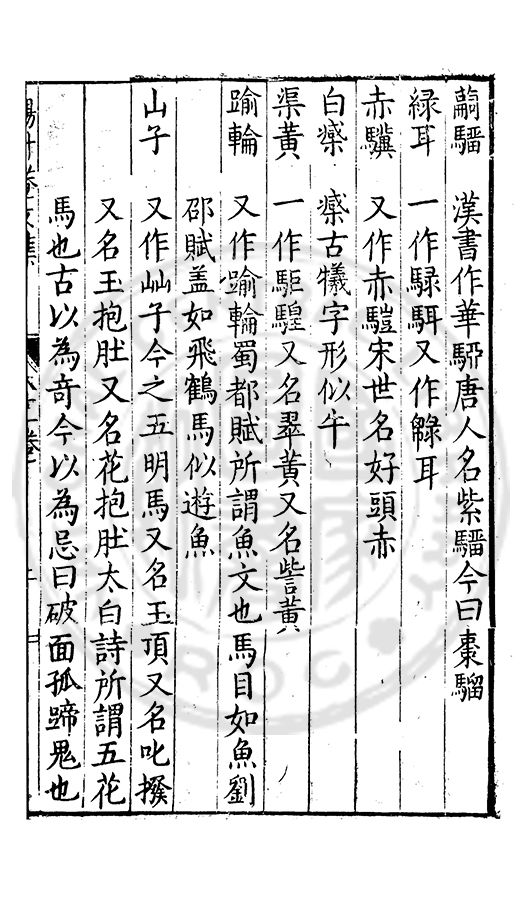 騮 漢書作華騮唐人名紫騮今曰棗騮
緑耳 一作騄駬又作䮄耳
赤驥 又作赤騹宋世名好頭赤
白㸦 㸦古犧字形似牛
渠黃 一作駏騜又名翠黃又名訾黃
踰輪 又作踰輪蜀都賦所謂魚文也馬目如魚劉
邵賦盖如飛鶴馬似遊魚
山子 又作屾子今之五明馬又名玉頂又名叱撥
又名玉抱肚又名花抱肚太白詩所謂五花
馬也古以為竒今以為忌曰破面孤蹄鬼也